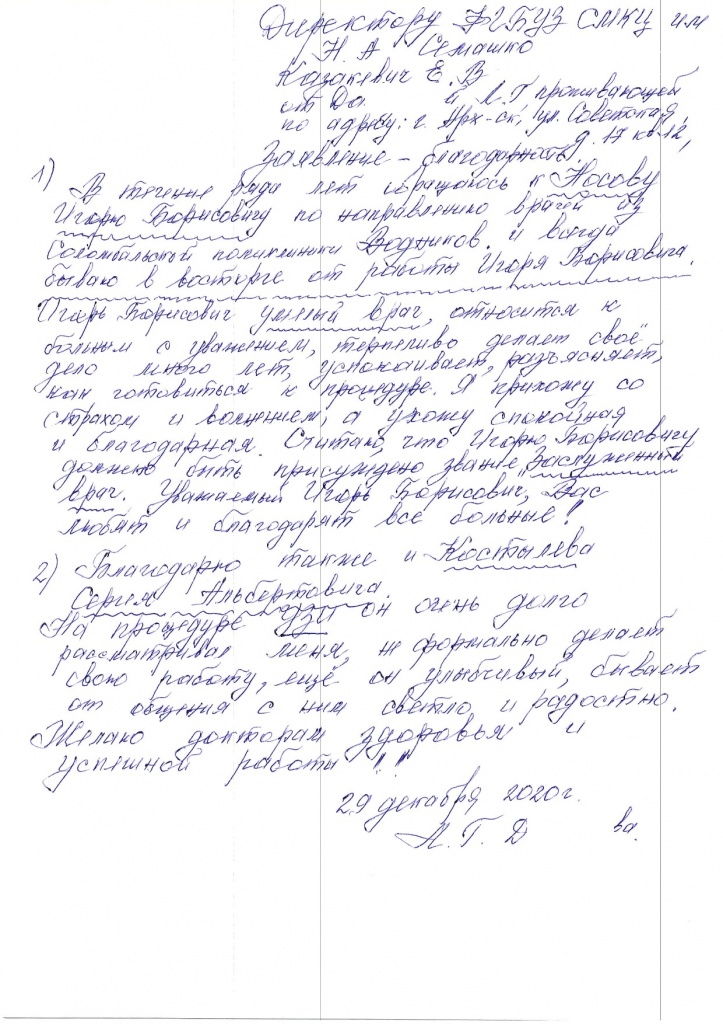 Директору ФГБУЗ СМКЦ им
Н. А Семашко
Казакевич Е. В
от Да й Л.Г проживающей
по адресу: г. Арх-ск, ул. Советская,
д. 17 кв 12,
Заявление – благодарность.
1) В течение ряда лет обращаюсь к Носову
Игорю Борисовичу по направлению врачей из
Соломбальской поликлиники Водников. и всегда
бываю в восторге от работы Игоря Борисовича.
Игорь Борисович умелый врач, относится к
больным с уважением, терпеливо делает своё
дело много лет, успокаивает, разъясняет,
как готовиться к процедуре. Я прихожу со
страхом и волнением, а ухожу спокойная
и благодарная. Считаю, что Игорю Борисовичу
должно быть присуждено звание „Заслуженный
врач. Уважаемый Игорь Борисович, Вас
любят и благодарят все больные!
2) Благодарю также и Костылева
Сергея Альбертовича.
На процедуре УЗИ он очень долго
рассматривал меня, не формально делает
свою работу, ещё он улыбчивый, бывает
от общения с ним светло и радостно.
Желаю докторам здоровья и
успешной работы!!
29 декабря 2020г.
Л. Г. Д ва.